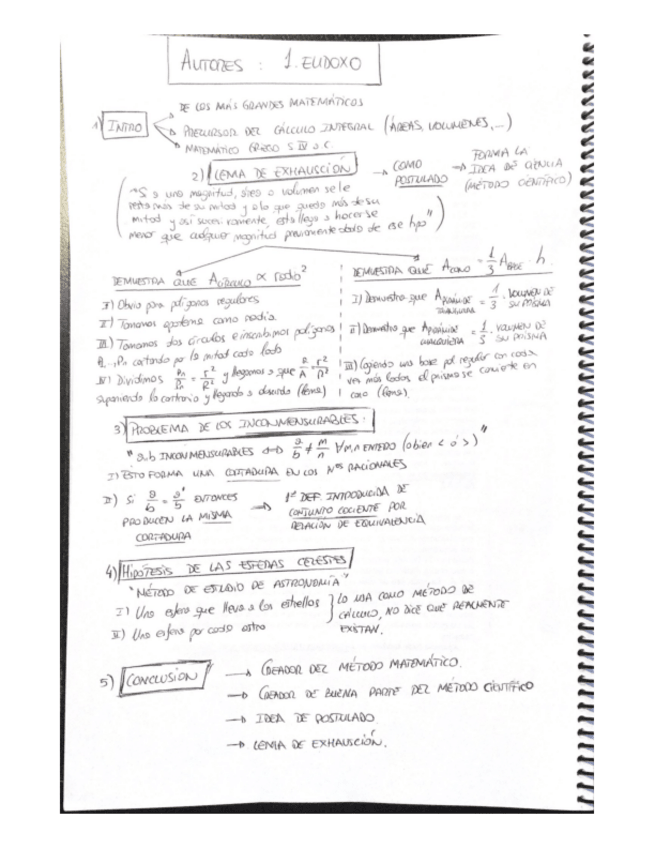 AUTORES : 1. EUDOXO
1) INTRO
DE LOS MÁS GRANDES MATEMÁTICOS
PRECURSOR DEL CÁLCULO INTEGRAL (ÁREAS, VOLUMENES, ...)
MATEMÁTICO GRIEGO S. IV a. C.
2) LEMA DE EXHAUSCIÓN → COMO POSTULADO → FORMA LA IDEA DE CIENCIA (MÉTODO CIENTÍFICO)
("Si a una magnitud, área o volumen se le
resta más de su mitad y a lo que queda más de su
mitad y así sucesivamente, esta llega a hacerse
menor que cualquier magnitud previamente dada de ese tipo")
DEMUESTRA QUE A círculo ∝ radio²
I) Obvio para polígonos regulares
II) Tomamos apotema como radio.
III) Tomamos dos círculos e inscribimos polígonos
P1...,Pn cortando por la mitad cada lado
IV) Dividimos Pn/Pn = r²/R² y llegamos a que a/A = r²/R²
suponiendo lo contrario y llegando a absurdo (lema)
DEMUESTRA QUE A cono = 1/3 A BASE · h.
I) Demuestra que A PIRÁMIDE TRIANGULAR = 1/3 · VOLUMEN DE SU PRISMA
II) Demuestra que A PIRÁMIDE CUALQUIERA = 1/3 · VOLUMEN DE SU PRISMA
III) Cogiendo una base pol. regular con cada
vez más lados el prisma se convierte en
cono (lema).
3) PROBLEMA DE LOS INCONMENSURABLES:
"a,b INCONMENSURABLES ⟺ a/b ≠ m/n ∀m,n ENTERO (o bien < ó >)"
I) ESTO FORMA UNA CORTADURA EN LOS Nºs RACIONALES
II) Si a/b = a'/b' ENTONCES
PRODUCEN LA MISMA
CORTADURA
→ 1ª DEF. INTRODUCIDA DE
CONJUNTO COCIENTE POR
RELACIÓN DE EQUIVALENCIA
4) HIPÓTESIS DE LAS ESFERAS CELESTES
"MÉTODO DE ESTUDIO DE ASTRONOMÍA"
I) Una esfera que lleva a las estrellas
II) Una esfera por cada astro
LO USA COMO MÉTODO DE
CÁLCULO, NO DICE QUE REALMENTE
EXISTAN.
5) CONCLUSIÓN
→ CREADOR DEL MÉTODO MATEMÁTICO.
→ CREADOR DE BUENA PARTE DEL MÉTODO CIENTÍFICO
→ IDEA DE POSTULADO
→ LEMA DE EXHAUSCIÓN.